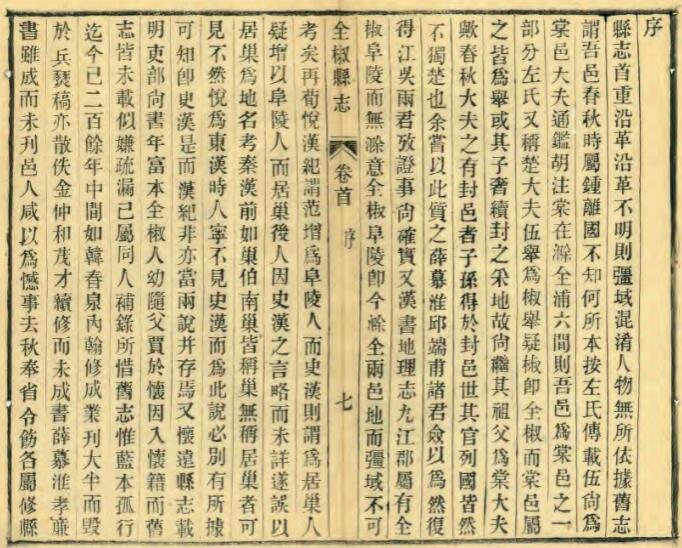 序
縣志首重沿革沿革不明則疆域混淆人物無所依據舊志
謂吾邑春秋時屬鍾離國不知何所本按左氏傳載伍尙爲
棠邑大夫通鑑胡注棠在滁全浦六間則吾邑爲棠邑之一
部分左氏又稱楚大夫伍舉爲椒舉疑椒卽全椒而棠邑屬
之皆爲舉或其子奢續封之采地故尙繼其祖父爲棠大夫
歟春秋大夫之有封邑者子孫得於封邑世其官列國皆然
不獨楚也余嘗以此質之薛慕淮邱端甫諸君僉以爲然復
得江吳兩君攷證事尙確實又漢書地理志九江郡屬有全
椒阜陵而無滁意全椒阜陵卽今滁全兩邑地而疆域不可
全椒縣志 卷首 序 七
考矣再荀悅漢紀謂范增爲阜陵人而史漢則謂爲居巢人
疑增以阜陵人而居巢後人因史漢之言略而未詳遂誤以
居巢爲地名考秦漢前如巢伯南巢皆稱巢無稱居巢者可
見不然悅爲東漢時人寧不見史漢而爲此說必別有所據
可知卽史漢是而漢紀非亦當兩說并存焉又懷遠縣志載
明吏部尙書年富本全椒人幼隨父賈於懷因入懷籍而舊
志皆未載似嫌疏漏己屬同人補錄所惜舊志惟藍本孤行
迄今已二百餘年中間如韓春泉內翰修成業刊大半而毀
於兵燹稿亦散佚金仲和茂才續修而未成書薛慕淮孝廉
書雖成而未刊邑人咸以爲憾事去秋奉省令飭各屬修縣